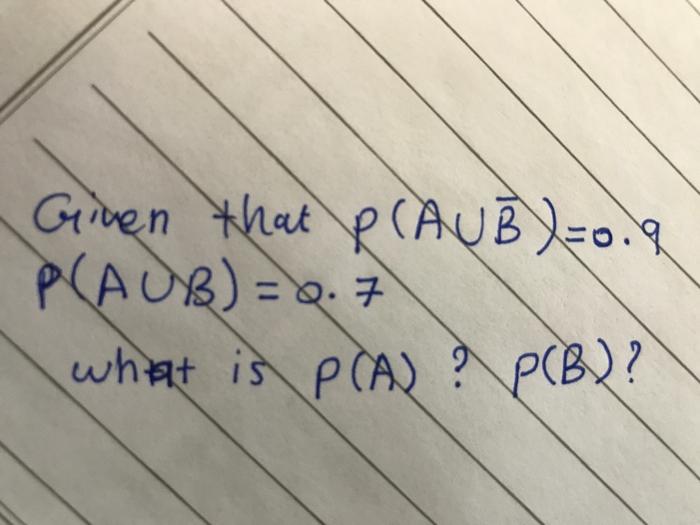 Given that P(A∪B̄)=0.9
P(A∪B) = 0.7
what is P(A) ? P(B)?